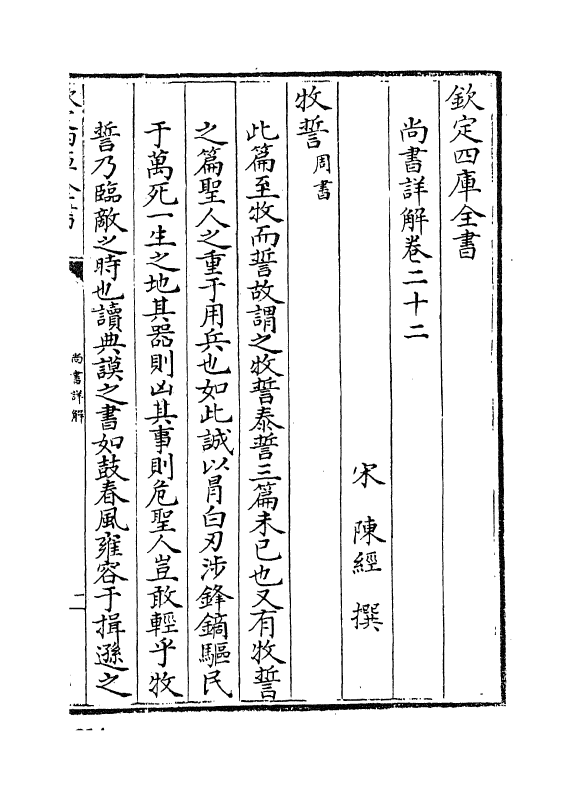 欽定四庫全書
尚書詳解卷二十二
宋 陳經 撰
牧誓 周書
此篇至牧而誓故謂之牧誓泰誓三篇未已也又有牧誓
之篇聖人之重于用兵也如此誠以冒白刃涉鋒鏑驅民
于萬死一生之地其器則凶其事則危聖人豈敢輕乎牧
誓乃臨敵之時也讀典謨之書如鼓春風雍容于揖遜之
尚書詳解